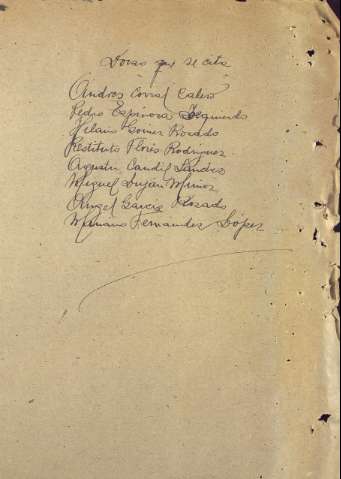 que se cita
Andrés Corral Calero
Pedro Espinosa Izquierdo
Gómez Rosado
Restituto Flores Rodríguez
Agustín Candil
Miguel Luján Muñoz
Angel García Rosado
Mariano Fernandez López